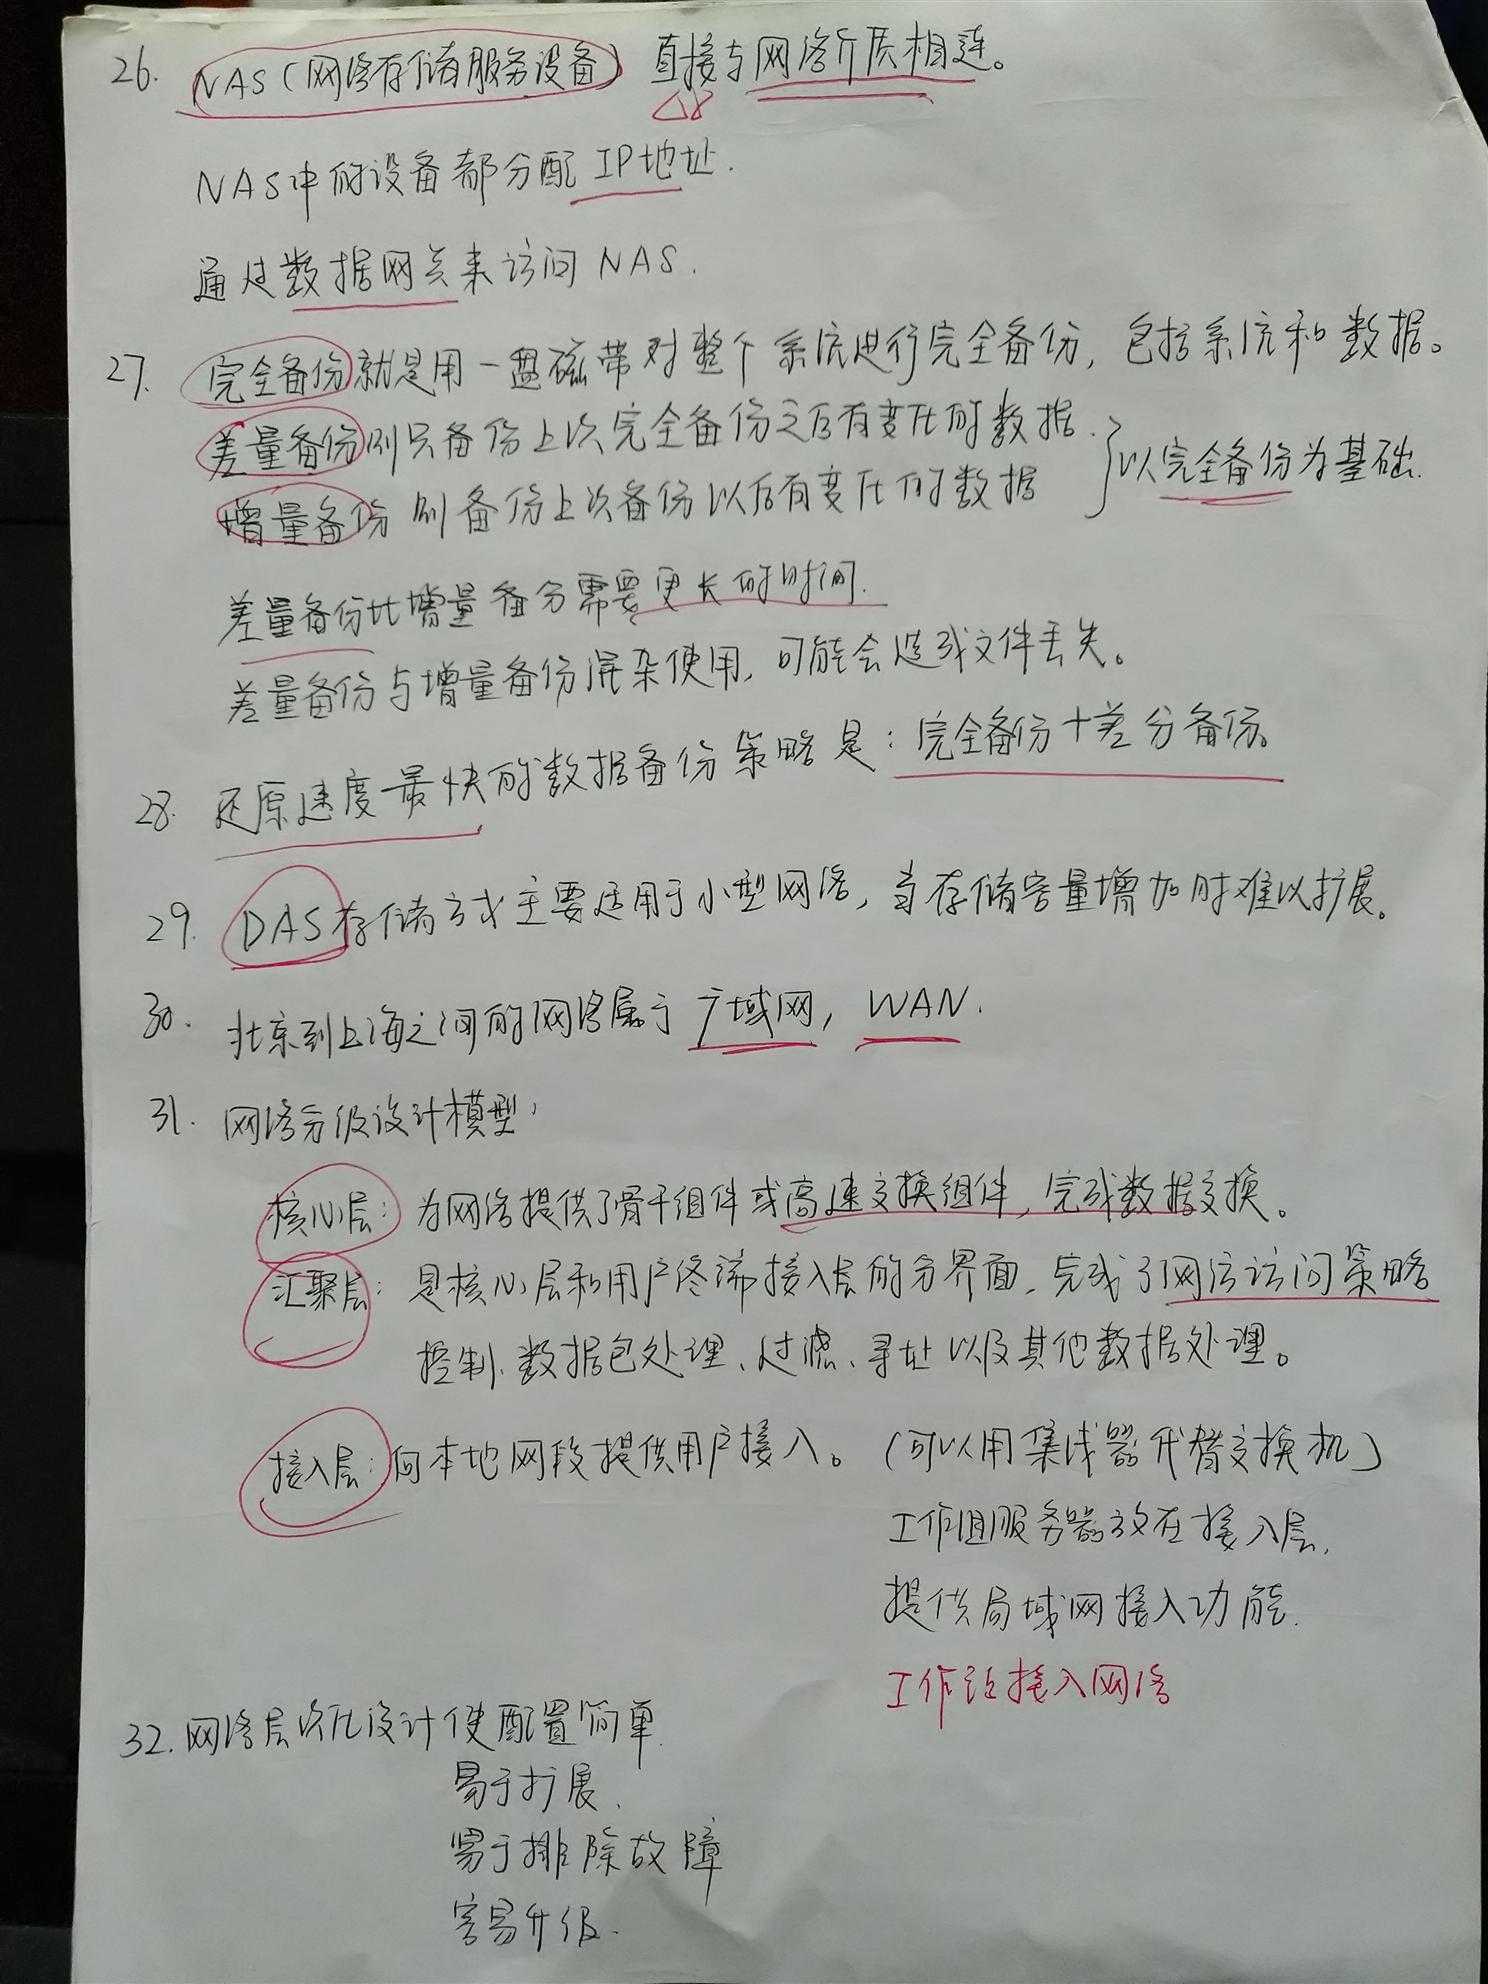 26. NAS(网络存储服务设备)直接与网络介质相连。
NAS中的设备都分配IP地址.
通过数据网关来访问NAS.
27. 完全备份就是用一盘磁带对整个系统进行完全备份,包括系统和数据。
差量备份则只备份上次完全备份之后有变化的数据.
增量备份则备份上次备份以后有变化的数据
}以完全备份为基础.
差量备份比增量备分需要更长的时间.
差量备份与增量备份混杂使用,可能会造成文件丢失。
28. 还原速度最快的数据备份策略是:完全备份+差分备份。
29. DAS存储方式主要适用于小型网络,当存储容量增加时难以扩展。
30. 北京到上海之间的网络属于广域网,WAN.
31. 网络分级设计模型:
核心层:为网络提供了骨干组件或高速交换组件,完成数据交换。
汇聚层:是核心层和用户终端接入层的分界面,完成了网络访问策略
控制、数据包处理、过滤、寻址以及其他数据处理。
接入层:向本地网段提供用户接入。(可以用集线器代替交换机)
工作组服务器放在接入层,
提供局域网接入功能.
工作站接入网络
32. 网络层次化设计使配置简单.
易于扩展.
易于排除故障
容易升级.